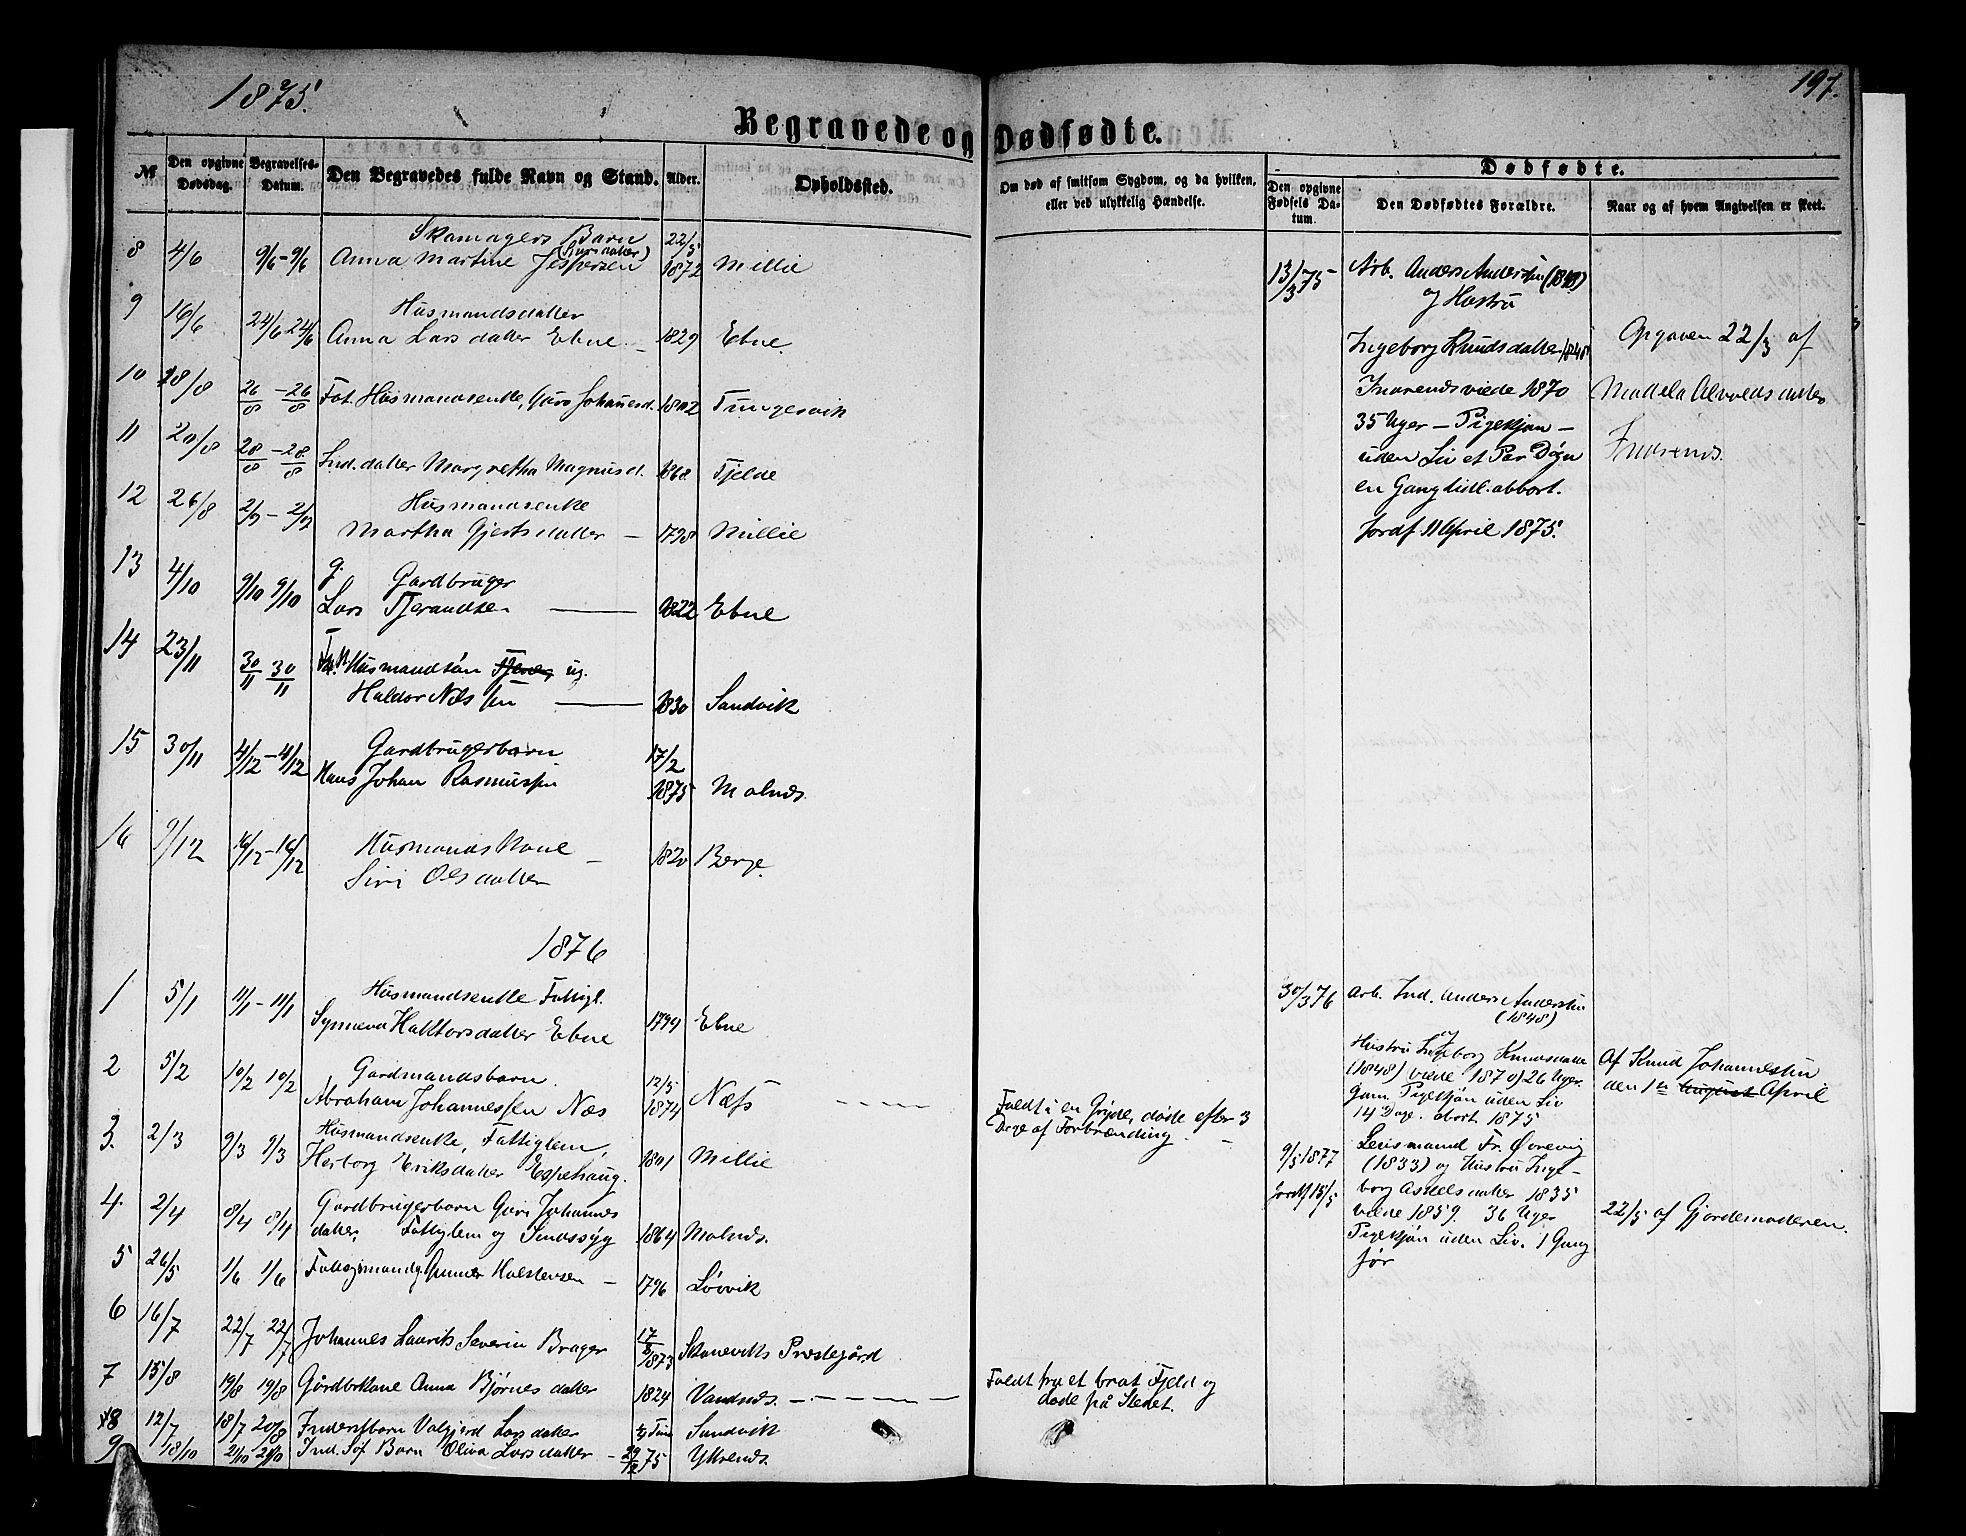 1875.
197.
Begravede og Dødfødte.
№
Den opgivne Dødsdag.
Begravelses-Datum.
Den Begravedes fulde Navn og Stand.
Alder.
Opholdssted.
Om død af smitsom Sygdom, og da hvilken, eller ved ulykkelig Hændelse.
Dødfødte.
Den opgivne Fødsels Datum.
Den Dødfødtes Forældre.
Naar og af hvem Angivelsen er skeet.
Skomagers Barn 22/5
8 4/6 9/6 - 9/6 Anna Martine Jespersen 1872 Millie
9 16/6 Husmandsdatter
24/6 24/6 Anna Larsdatter Ebne 1829 Ebne.
10 18/8 26/8 - 26/8 Fat. Husmandsenke, Guro Johannesd. 1802 Tungesvik
11 20/8 28/8 - 28/8 Ind. datter Margretha Magnusd. 1868 Fjelde
12 26/8 2/9 - 2/9 Husmandsenke
Martha Gjertsdatter 1798 Millie
13 4/10 9/10 9/10 g. Gardbruger
Lars Tjerandsen 1822 Ebne
14 23/11 30/11 30/11 Husmandsøn ug.
Haldor Nilssen 1830 Sandvik
15 30/11 4/12 - 4/12 Gardbrugerbarn 17/2
Hans Johan Rasmussen 1875 Molnes.
16 9/12 16/12 - 16/12 Husmandskone
Siri Olsdatter 1820 Berge.
1876
1 5/1 11/1 - 11/1 Husmandsenke Fattigl.
Synneva Haktorsdatter Ebne 1794 Ebne
2 5/2 10/2 10/2 Gardmandsbarn 12/5
Abraham Johannessen Næs 1874 Næss
3. 2/3 9/3 9/3 Husmandsenke, Fattiglem,
Herborg Eriksdatter Espehaug. 1801 Millie
4. 2/4 8/4 8/4 Gardbrugerbarn Guri Johannes
datter, Fattiglem og Sindssyg 1864 Molnes.
5 26/5 1/6 1/6 Gunner Holstensen 1796 Løvvik
6 16/7 22/7 22/7 Johannes Laurits Severin Brager 17/8 1873 Skaneviks Prestegård
7 15/8 19/8 19/8 Gårdbrkone Anna Bjørnesdatter 1824 Vandnes.
8 12/7 18/7 20/8 Inderstbarn Valgjerd Larsdatter Sandvik
9 18/10 21/10 21/10 Ind. Barn Oliva Larsdatter 29/12 75 Yttrenes.
Faldt i en Gryde, døde efter 3
Dage af Forbrænding.
Faldt fra et brat Fjeld og
døde på Stedet.
13/3 75 Arb. Anders Andersen (1848)
og Hustru
Ingeborg Knudsdatter 1848
Inarensviede 1870
35 Uger - Pigekjøn -
uden Liv et Par Døgn
en Gang tidl. abbort.
Jordf. 11 April 1875.
Opgaven 22/3 af
30/3 76 Arb. Ind. Anders Andersen
(1848)
og
Hustru Ingeborg Knudsdatter
(1848) viede 1870) 26 Uger
Gam. Pigekjøn uden Liv
14 Dage. abort 1875
Af Knud Johannessen
den 1ste August April
9/5 1877 Lensmand Fr. Ørevig
(1833) og Hustru Inge-
Jordf 15/5 borg Askelsdatter 1835
viede 1859. 36 Uger
Pigekjøn uden Liv. 1 Gang
før
22/5 af Gjordemoderen.